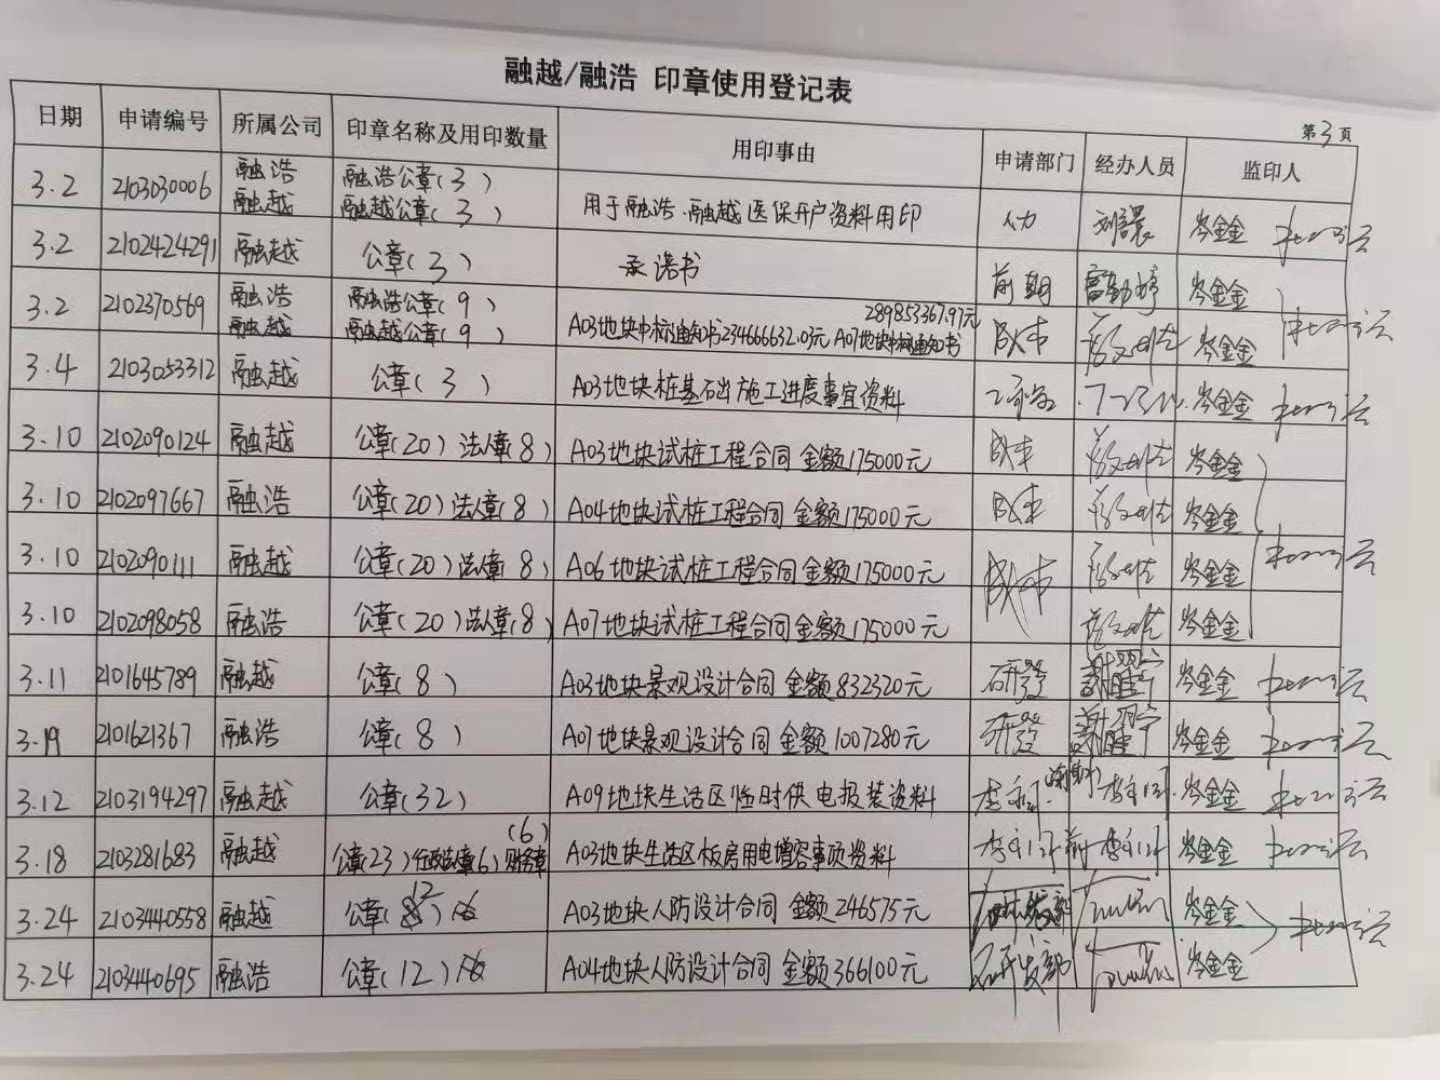 融越/融浩 印章使用登记表
第3页
日期 申请编号 所属公司 印章名称及用印数量 用印事由 申请部门 经办人员 监印人
3.2 2103030006 融浩 融越 融浩公章(3) 融越公章(3) 用于融浩、融越医保开户资料用印 人力 岑金金
3.2 2102424291 融越 公章(3) 承诺书 前期 岑金金
3.2 2102370569 融浩 融越 融浩公章(9) 融越公章(9) A03地块中标通知书234666632.03元 A07地块中标通知书 289853367.97元 成本 岑金金
3.4 2103053312 融越 公章(3) A03地块桩基础施工进度事宜资料 岑金金
3.10 2102090124 融越 公章(20) 法人章(8) A03地块试桩工程合同 金额175000元 成本 岑金金
3.10 2102097667 融浩 公章(20) 法人章(8) A04地块试桩工程合同 金额175000元 成本 岑金金
3.10 2102090111 融越 公章(20) 法人章(8) A06地块试桩工程合同 金额175000元 成本 岑金金
3.10 2102098058 融浩 公章(20) 法人章(8) A07地块试桩工程合同 金额175000元 岑金金
3.11 2101645789 融越 公章(8) A03地块景观设计合同 金额832320元 研發 岑金金
3.19 2101621367 融浩 公章(8) A07地块景观设计合同 金额1007280元 研發 岑金金
3.12 2103194297 融越 公章(32) A09地块生活区临时供电报装资料 岑金金
3.18 2103281683 融越 公章(23) 财务章(6) A03地块生活区板房用电增容事项资料 岑金金
3.24 2103440558 融越 公章(12) A03地块人防设计合同 金额246575元 研发部 岑金金
3.24 2103440695 融浩 公章(12) A04地块人防设计合同 金额366100元 研发部 岑金金